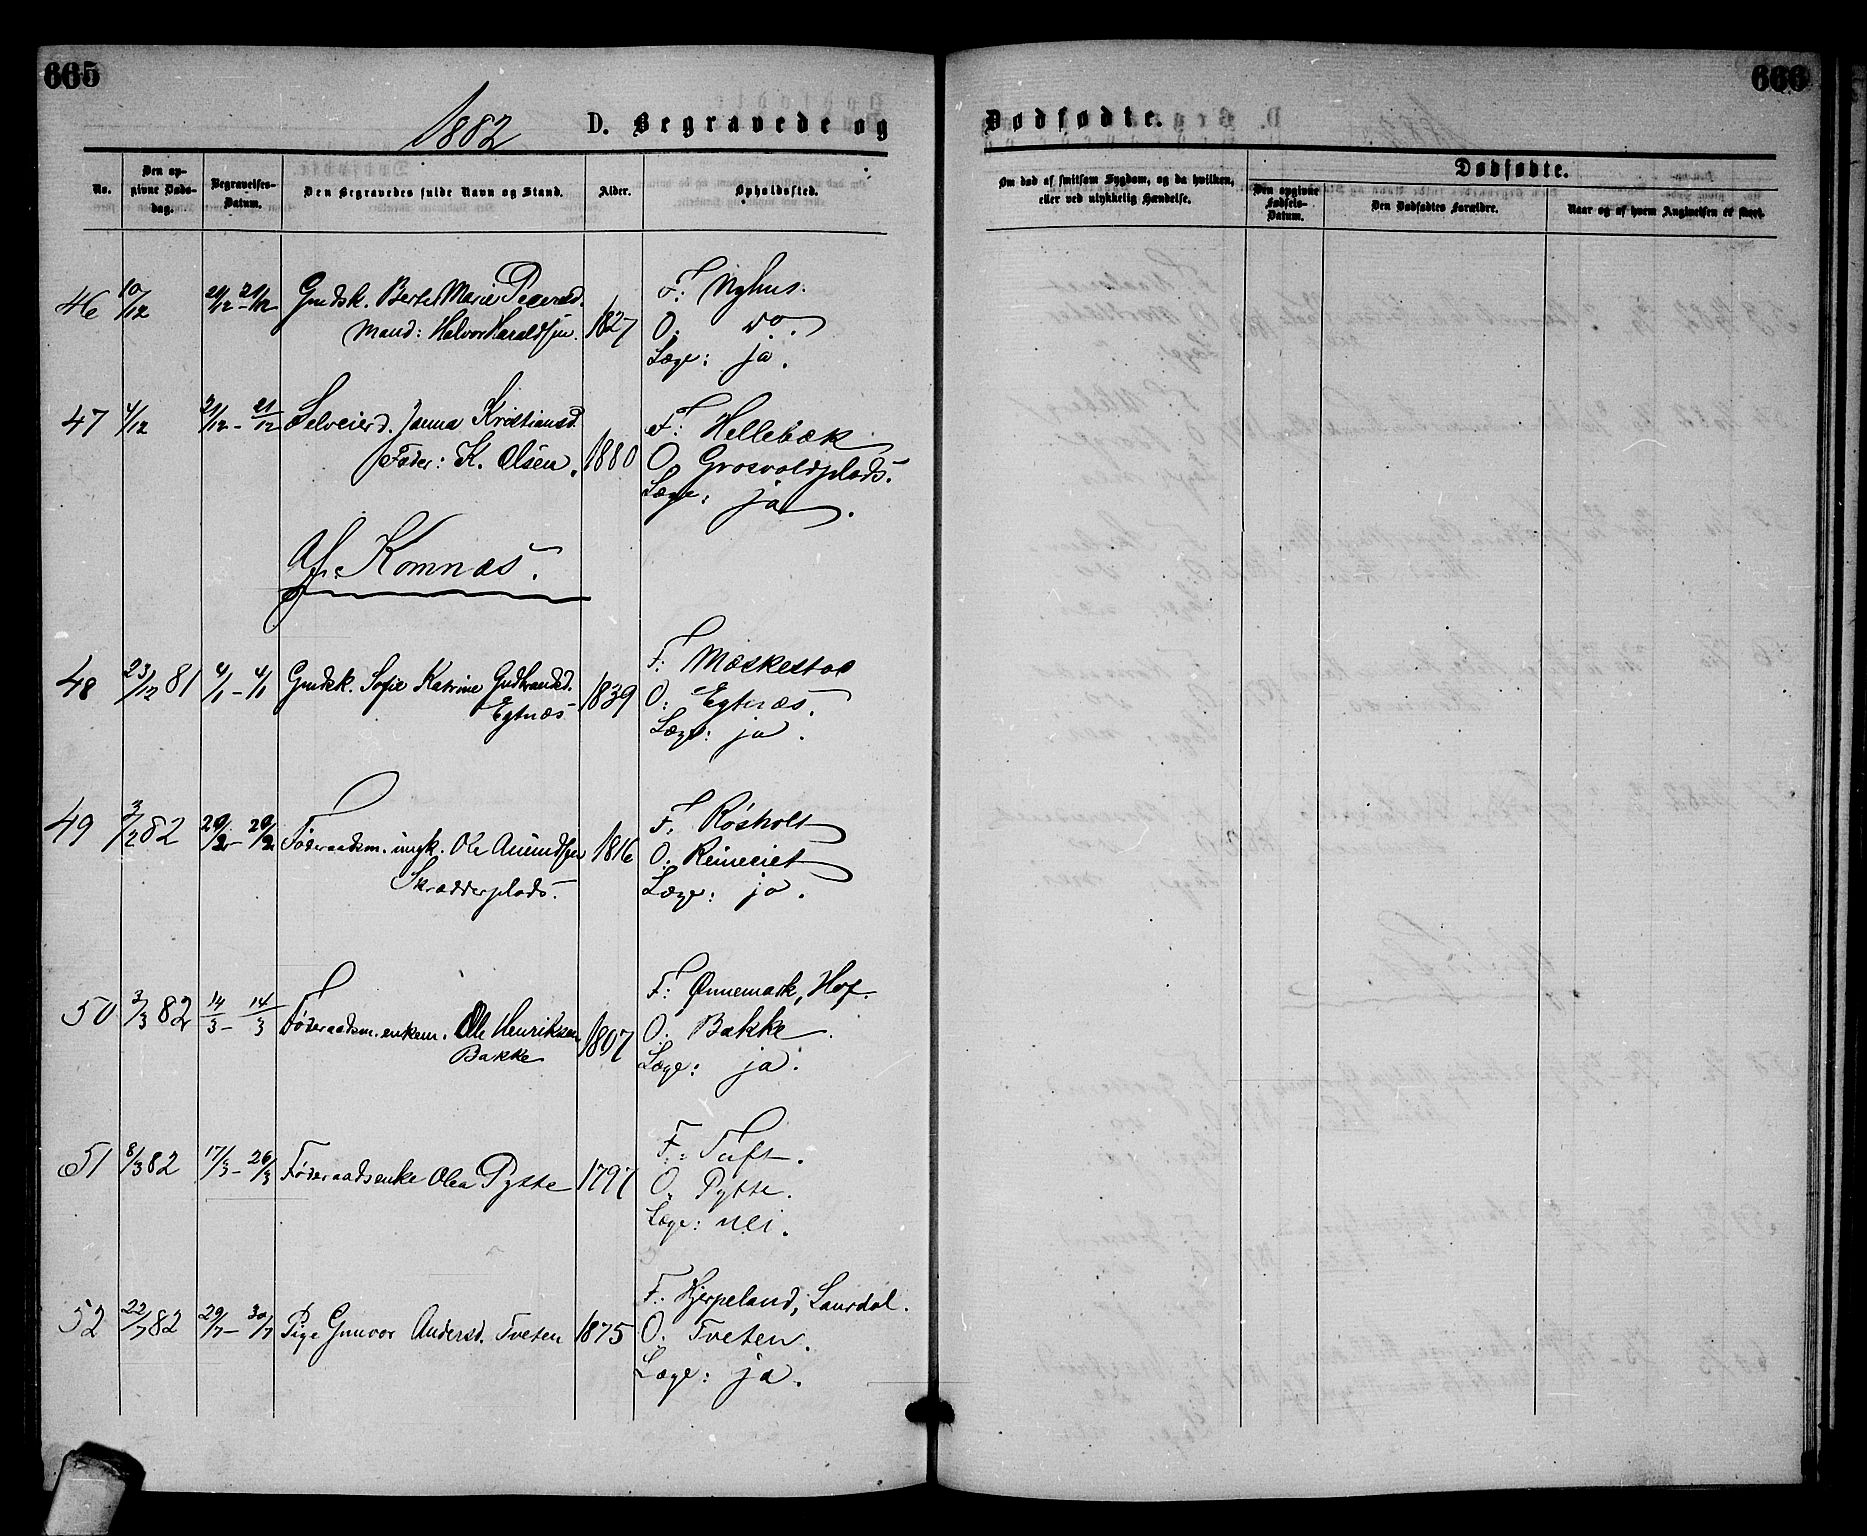 665
1882
D. Begravede og
No.
Den op-
givne Døds-
dag.
Begravelses-
Datum.
Den Begravedes fulde Navn og Stand.
Alder.
Opholdssted.
46 10/12 21/12 - 21/12 Gmdsk. Berte Marie Pedersd. F: Nyhus.
Mand: Halvor Haraldsen. 1827 O: do.
Læge: ja.
47 4/12 21/12 - 21/12 Selveierd. Janna Kristiansd. F: Hellebæk
Fader: K. Olsen. 1880 O. Grosvoldplads.
Læge: ja.
Af: Komnæs.
48 23/12 81 4/1 - 4/1 Gmdsk. Sofie Katrine Gudbrandsd. 1839 F: Mæskestad
Egtnæs O: Egtnæs.
Læge: ja.
49 3/2 82 20/2 - 20/2 Føderaadsm. ungk. Ole Amundsen 1816 F. Røsholt
Skrædderplads. O.
Læge: ja.
50 3/3 82 14/3 - 14/3 Føderaadsm. enkem. Ole Henriksen 1807 F: Ønnemark, Hof.
Bakke O. Bakke.
Læge: ja.
51 8/3 82 17/3 - 26/3 Føderaadsenke Olea Pytte 1797 F: Tuft.
O. Pytte.
Læge: nei.
52 22/7 82 29/7 - 30/7 Pige Gunvor Andersd. Tveten 1875 F. Hjerpeland, Laurdal.
O. Tveten.
Læge: ja.
666
Dødfødte.
Om død af smitsom Sygdom, og da hvilken,
eller ved ulykkelig Hændelse.
Dødfødte.
Den opgivne
Fødsels-
Datum.
Den Dødfødtes Forældre.
Naar og af hvem Angivelsen er skeet.